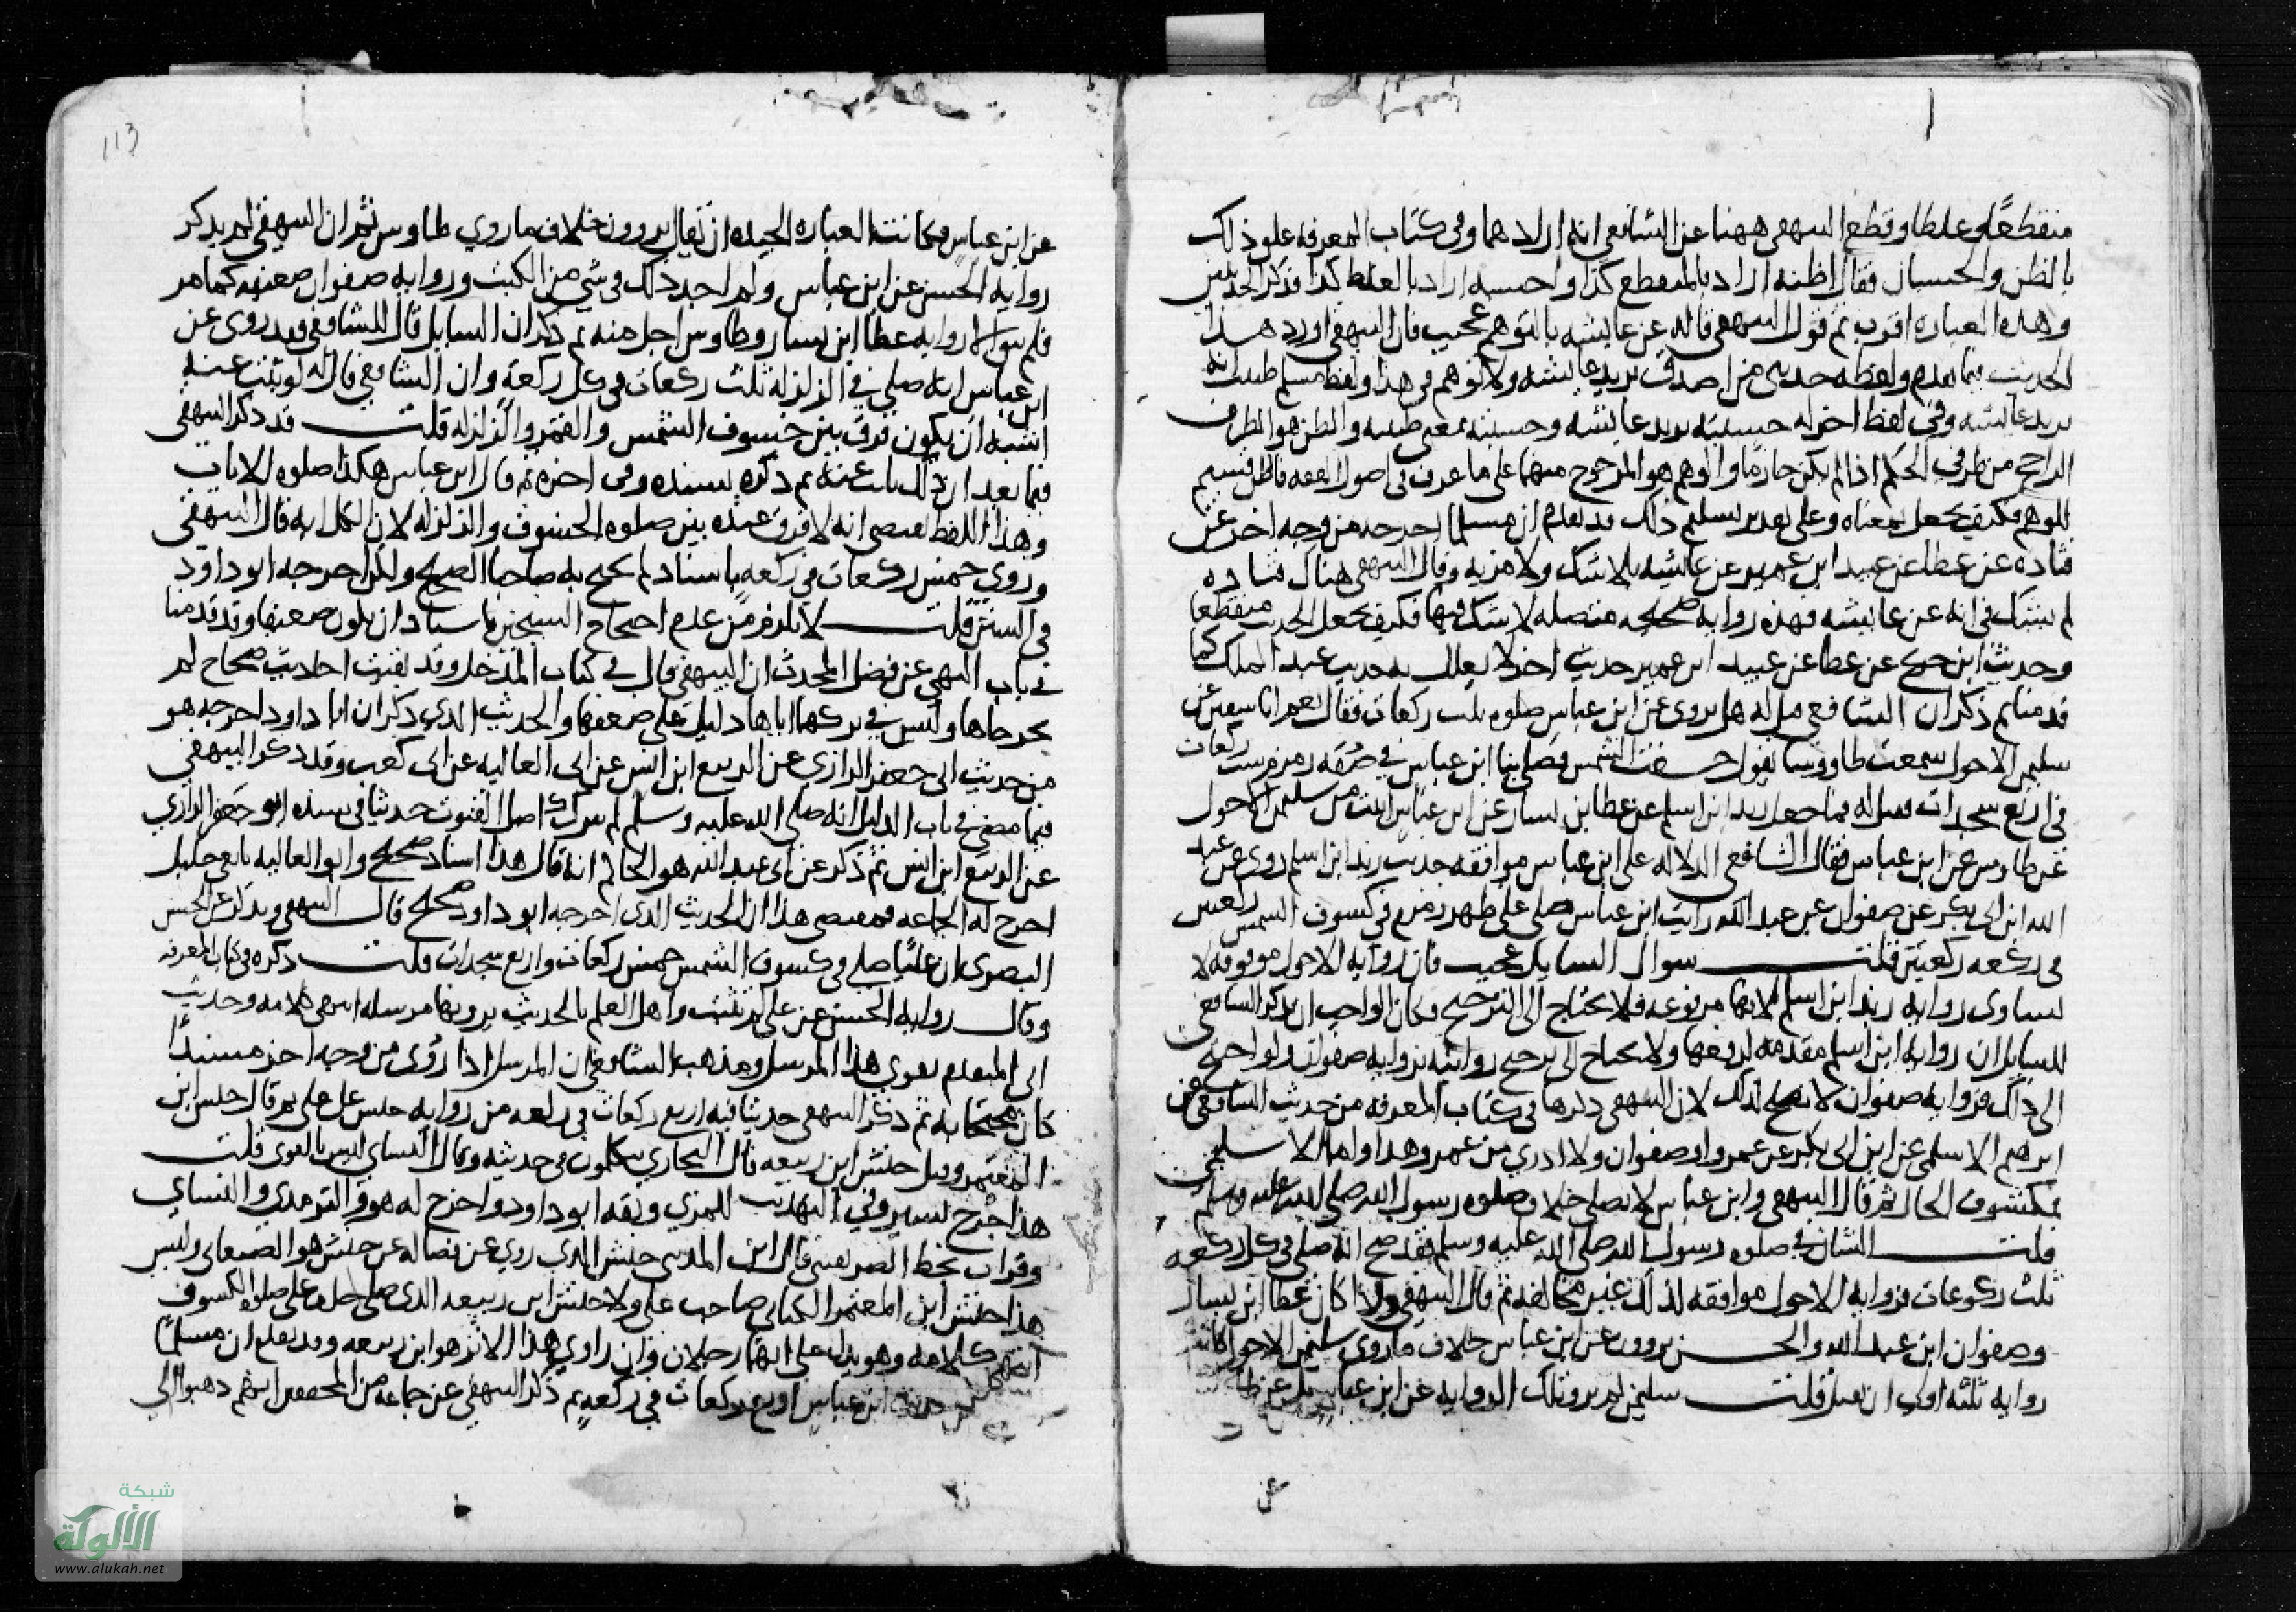 منقطعا وغلطا وقطع البيهقى ههنا عن الشافعى انه ارادهما وفى كتاب المعرفه علق ذلك
بالظن والحسبان فقال اظنه اراد بالمنقطع كذا واحسبه اراد بالغلط كذا فذكر الحديثين
وهذه العباره اقرب ثم قول البيهقى قاله عن عايشه بالتوهم عجيب فان البيهقى اورد هذا
الحديث فيما تقدم ولفظه حدثنى من اصدق يريد عايشه ولا توهم فى هذا ولفظ مسلم ظننت انه
يريد عايشه وفى لفظ اخر له حسبته يريد عايشه وحسبته بمعنى ظننته والظن هو الطرف
الراجح من طرفى الحكم اذا لم يكن جازما والوهم هو المرجوح منهما على ما عرف فى اصول الفقه فالظن قسيم
للوهم فكيف يجعل بمعناه وعلى تقدير تسليم ذلك قد تقدم ان مسلما اخرجه من وجه اخر عن
قتاده عن عطا عن عبيد ابن عمير عن عايشه بلا شك ولا مريه وقال البيهقى هناك قتاده
لم يشك فى انه عن عايشه فهذه روايه صحيحه متصله لا شك فيها فكيف يجعل الحديث منقطعا
وحديث ابن جريج عن عطا عن عبيد ابن عمير حديث اخر لا يعلل به حديث عبد الملك كما
قدمنا ثم ذكر ان الشافعى قيل له هل يروى عن ابن عباس صلوه ثلث ركعات فقال نعم انا سفين عن
سليمن الاحول سمعت طاووسا يقول خسفت الشمس فصلى بنا ابن عباس فى صفه زمزم ست ركعات
فى اربع سجدات فقيل له فما جعل زيد ابن اسلم عن عطا بن يسار عن ابن عباس اثبت من سليمن الاحول
عن طاوس عن ابن عباس فقال الشافعى الدلاله على ابن عباس موافقه حديث زيد ابن اسلم روى عن عبد
الله ابن ابى بكر عن صفوان ابن عبد الله رايت ابن عباس صلى على ظهر زمزم فى كسوف الشمس ركعتين
فى ركعه ركعتين قلت سوال السايل عجيب فان روايه الاحول موقوفه لا
تساوى روايه زيد ابن اسلم لانها مرفوعه فلا يحتاج الى الترجيح وكان الواجب ان يذكر الشافعى
للسايل ان روايه ابن اسلم مقدمه لرفعها ولا يحتاج الى ترجيح روايته بروايه صفوان ولو احتيج
الى ذلك فروايه صفوان لا تصلح لذلك لان البيهقى ذكرها فى كتاب المعرفه من حديث الشافعى عن
ابرهيم الاسلمى عن ابن ابى بكر عن عمرو او صفوان ولا ادرى من عمرو هذا واما الاسلمى
فمكشوف الحال ثم قال البيهقى وابن عباس لا يصلى خلاف صلوه رسول الله صلى الله عليه وسلم
قلت الشان فى صلوه رسول الله صلى الله عليه وسلم فقد صح انه صلى فى كل ركعه
ثلث ركوعات فروايه الاحول موافقه لذلك غير مخالفه ثم قال البيهقى واذا كان عطا ابن يسار
وصفوان ابن عبد الله والحسن يروون عن ابن عباس خلاف ما روى سليمن الاحول كانت
روايه ثلثه اولى ان تقبل قلت سليمن لم يرو تلك الروايه عن ابن عباس بل عن طاوس
عن ابن عباس فكانت العباره الجيده ان يقال يروون خلاف ما روى طاوس ثم ان البيهقى لم يذكر
روايه الحسن عن ابن عباس ولم اجد ذلك فى شي من الكتب وروايه صفوان ضعيفه كما مر
فلم يبق الا روايه عطا ابن يسار وطاوس اجل منه ثم ذكر ان السايل قال للشافعى فقد روى عن
ابن عباس انه صلى فى الزلزله ثلث ركعات فى كل ركعه وان الشافعى قال له لو ثبت عنه
اشبه ان يكون فرق بين خسوف الشمس والقمر والزلزله قلت قد ذكر البيهقى
فيما بعد ان ذلك ثابت عنه ثم ذكره بسنده وفى اخره ثم قال ابن عباس هكذا صلوه الايات
وهذا اللفظ يقتضى انه لا فرق عنده بين صلوه الخسوف والزلزله لان الكل ايه قال البيهقى
وروى خمس ركعات فى ركعه باسناد لم يحتج به صاحبا الصحيح ولكن اخرجه ابو داود
فى السنن قلت لا يلزم من عدم احتجاج الشيخين باسناد ان يكون ضعيفا وقد قدمنا
فى باب النهى عن فضل المحدث ان البيهقى قال فى كتاب المدخل وقد بقيت احاديث صحاح لم
يخرجاها وليس فى تركهما اياها دليل على ضعفها والحديث الذى ذكر ان ابا داود اخرجه هو
من حديث ابى جعفر الرازى عن الربيع ابن انس عن ابى العاليه عن ابى كعب وقد ذكر البيهقى
فيما مضى فى باب الدليل انه صلى الله عليه وسلم لم يترك اصل القنوت حديثا فى سنده ابو جعفر الرازى
عن الربيع ابن انس ثم ذكر عن ابى عبد الله هو الحاكم انه قال هذا اسناد صحيح وابو العاليه تابعى جليل
اخرج له الجماعه فمقتضى هذا ان الحديث الذى اخرجه ابو داود صحيح قال البيهقى ويذكر عن الحسن
البصرى ان عليا صلى فى كسوف الشمس خمس ركعات واربع سجدات قلت ذكره فى كتاب المعرفه
وقال روايه الحسن عن على لم تثبت واهل العلم بالحديث يرونها مرسله انتهى كلامه وحديث
ابى المتقدم يقوى هذا المرسل ومذهب الشافعى ان المرسل اذا روى من وجه اخر مسندا
كان محتجا به ثم ذكر البيهقى حديثا فيه اربع ركعات فى ركعه من روايه حنش عن على ثم قال حنش ابن
المعتمر وقيل حنش ابن ربيعه قال البخارى يتكلمون فى حديثه وقال النساى ليس بالقوى قلت
هذا جرح يسير وفى التهذيب للمزى وثقه ابو داود واخرج له هو والترمذى والنساى
وقرات بخط الصريفينى قال ابن المدينى حنش الذى روى عن فضاله عن حنش هو الصنعانى وليس
هذا حنش ابن المعتمر الكنانى صاحب على ولا حنش ابن ربيعه الذى صلى خلف على صلوه الكسوف
انتهى كلامه وهو يدل على انهما رجلان وان راوى هذا الاثر هو ابن ربيعه وقد تقدم ان مسلما
ابن عباس اربع ركعات فى ركعه ثم ذكر البيهقى عن جماعه من المحققين انهم ذهبوا الى
113
شبكة
الألوكة
www.alukah.net